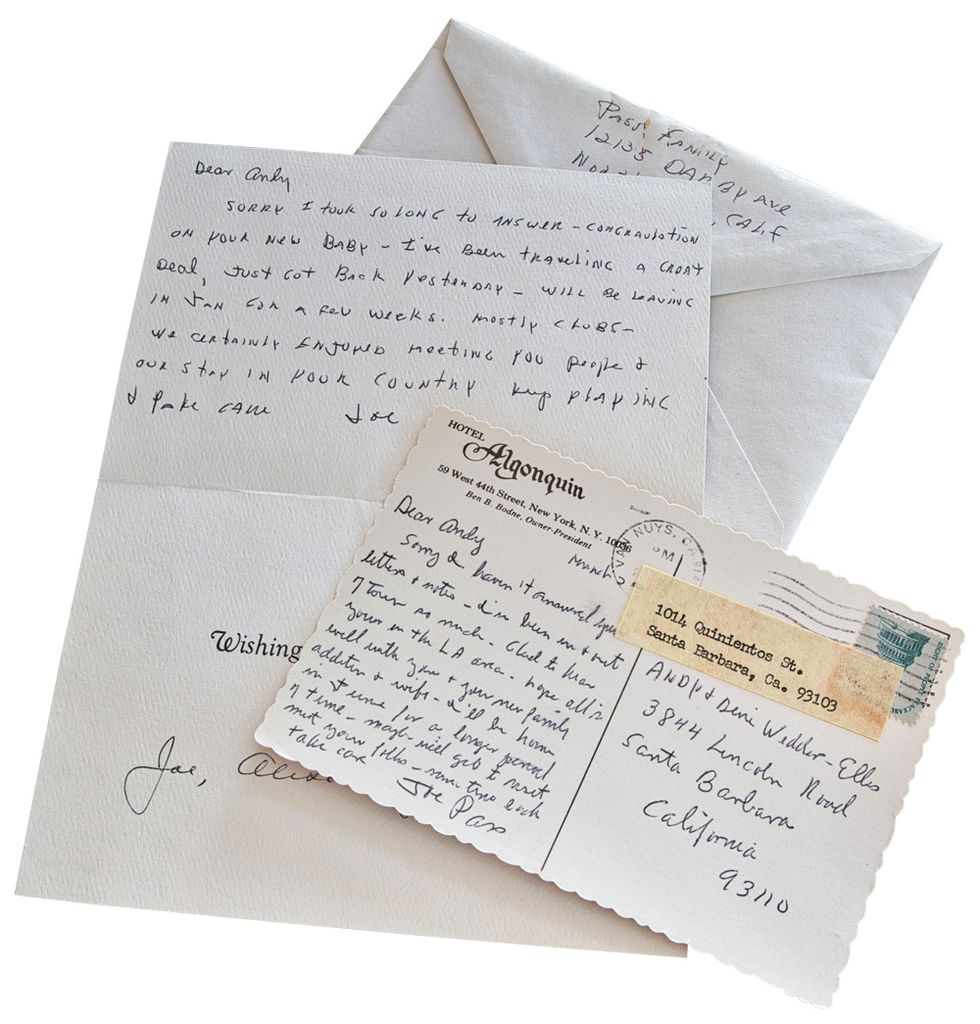 Pass Family
12135 DARBY AVE
CALIF
Dear Andy
SORRY I TOOK SO LONG TO ANSWER - CONGRAULATION
ON YOUR NEW BABY - I'VE BEEN TRAVELING A GREAT
DEAL, JUST GOT BACK YESTERDAY - WILL BE LEAVING
IN JAN FOR A FEW WEEKS. MOSTLY CLUBS -
WE CERTAINLY ENJOYED MEETING YOU PEOPLE &
OUR STAY IN YOUR COUNTRY KEEP PLAYING
& TAKE CARE JOE
Wishing
Joe,
HOTEL
Algonquin
59 West 44th Street, New York, N. Y. 10036
Ben B. Bodne, Owner-President
March 2
Dear Andy
Sorry I haven't answered your
letters & notes - I've been in & out
of town so much. Glad to hear
your in the LA area - hope all's
well with you & your new family
addition & wife - I'll be home
in June for a longer period
of time - maybe we'll get to visit
meet your folks - some time each
take care
Joe Pass
VAN NUYS, CA 914
PM
1014 Quinientos St.
Santa Barbara, Ca. 93103
Andy & Deni Wedder-Ellis
3844 Lincoln Road
Santa Barbara
California
93110